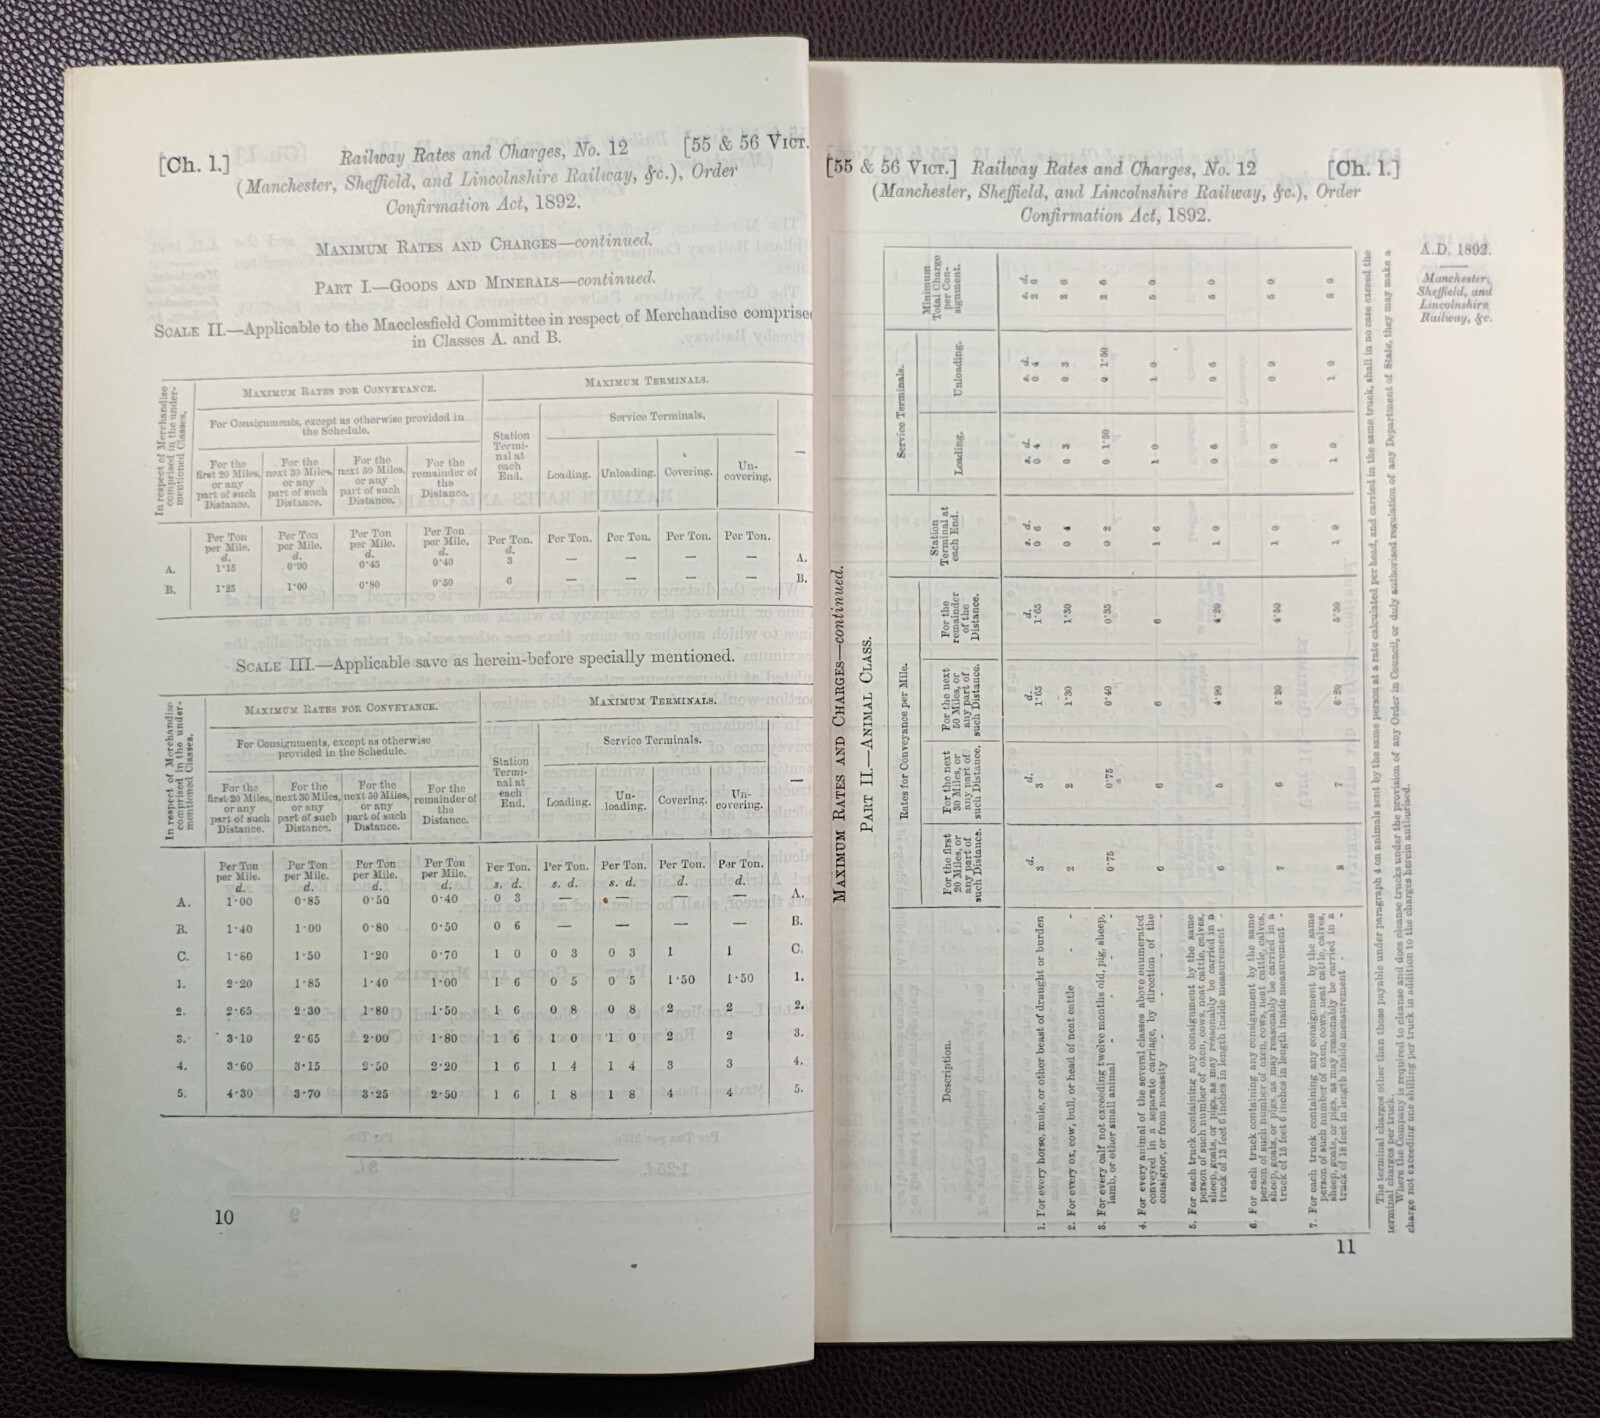 [Ch. l.] Railway Rates and Charges, No. 12 [55 & 56 VICT.
(Manchester, Sheffield, and Lincolnshire Railway, &c.), Order
Confirmation Act, 1892.
MAXIMUM RATES AND CHARGES—continued.
PART I.—GOODS AND MINERALS—continued.
SCALE II.—Applicable to the Macclesfield Committee in respect of Merchandise comprised
in Classes A. and B.
In respect of Merchandise
comprised in the under-
mentioned Classes.
MAXIMUM RATES FOR CONVEYANCE. MAXIMUM TERMINALS.
For Consignments, except as otherwise provided in
the Schedule.
Service Terminals.
For the
first 20 Miles,
or any
part of such
Distance.
For the
next 30 Miles,
or any
part of such
Distance.
For the
next 50 Miles,
or any
part of such
Distance.
For the
remainder of
the
Distance.
Station
Termi-
nal at
each
End.
Loading. Unloading. Covering. Un-
covering.
—
Per Ton
per Mile.
d.
Per Ton
per Mile.
d.
Per Ton
per Mile.
d.
Per Ton
per Mile.
d.
Per Ton.
d.
Per Ton. Per Ton. Per Ton. Per Ton.
A. 1·15 0·90 0·45 0·40 3 — — — — A.
B. 1·25 1·00 0·80 0·50 6 — — — — B.
SCALE III.—Applicable save as herein-before specially mentioned.
In respect of Merchandise
comprised in the under-
mentioned Classes.
MAXIMUM RATES FOR CONVEYANCE. MAXIMUM TERMINALS.
For Consignments, except as otherwise
provided in the Schedule.
Service Terminals.
For the
first 20 Miles,
or any
part of such
Distance.
For the
next 30 Miles,
or any
part of such
Distance.
For the
next 50 Miles,
or any
part of such
Distance.
For the
remainder of
the
Distance.
Station
Termi-
nal at
each
End.
Loading. Un-
loading. Covering. Un-
covering.
—
Per Ton
per Mile.
d.
Per Ton
per Mile.
d.
Per Ton
per Mile.
d.
Per Ton
per Mile.
d.
Per Ton.
s. d.
Per Ton.
s. d.
Per Ton.
s. d.
Per Ton.
d.
Per Ton.
d.
A. 1·00 0·85 0·50 0·40 0 3 — — — — A.
B. 1·40 1·00 0·80 0·50 0 6 — — — — B.
C. 1·60 1·50 1·20 0·70 1 0 0 3 0 3 1 1 C.
1. 2·20 1·85 1·40 1·00 1 6 0 5 0 5 1·50 1·50 1.
2. 2·65 2·30 1·80 1·50 1 6 0 8 0 8 2 2 2.
3. 3·10 2·65 2·00 1·80 1 6 1 0 1 0 2 2 3.
4. 3·60 3·15 2·50 2·20 1 6 1 4 1 4 3 3 4.
5. 4·30 3·70 3·25 2·50 1 6 1 8 1 8 4 4 5.
10
[55 & 56 VICT.] Railway Rates and Charges, No. 12 [Ch. l.]
(Manchester, Sheffield, and Lincolnshire Railway, &c.), Order
Confirmation Act, 1892.
A.D. 1892.
Manchester,
Sheffield, and
Lincolnshire
Railway, &c.
MAXIMUM RATES AND CHARGES—continued.
PART II.—ANIMAL CLASS.
Description.
Rates for Conveyance per Mile.
For the first
20 Miles, or
any part of
such Distance.
For the next
30 Miles, or
any part of
such Distance.
For the next
50 Miles, or
any part of
such Distance.
For the
remainder
of the
Distance.
Station
Terminal at
each End.
Service Terminals.
Loading. Unloading.
Minimum
Total Charge
per Con-
signment.
d. d. d. d. s. d. s. d. s. d. s. d.
1. For every horse, mule, or other beast of draught or burden 3 3 1·65 1·65 0 6 0 4 0 4 2 6
2. For every ox, cow, bull, or head of neat cattle - - 2 2 1·30 1·30 0 4 0 3 0 3 2 6
3. For every calf not exceeding twelve months old, pig, sheep,
lamb, or other small animal - - - 0·75 0·75 0·40 0·35 0 2 0 1·50 0 1·50 2 6
4. For every animal of the several classes above enumerated
conveyed in a separate carriage, by direction of the
consignor, or from necessity - - - 6 6 6 6 1 6 1 0 1 0 5 0
5. For each truck containing any consignment by the same
person of such number of oxen, cows, neat cattle, calves,
sheep, goats, or pigs, as may reasonably be carried in a
truck of 13 feet 6 inches in length inside measurement - 6 5 4·90 4·20 1 0 0 6 0 6 5 0
6. For each truck containing any consignment by the same
person of such number of oxen, cows, neat cattle, calves,
sheep, goats, or pigs, as may reasonably be carried in a
truck of 15 feet 6 inches in length inside measurement - 7 6 5·20 4·50 1 0 0 9 0 9 5 0
7. For each truck containing any consignment by the same
person of such number of oxen, cows, neat cattle, calves,
sheep, goats, or pigs, as may reasonably be carried in a
truck of 18 feet in length inside measurement - 8 7 6·20 5·50 1 0 1 0 1 0 5 0
The terminal charges other than those payable under paragraph 4 on animals sent by the same person at a rate calculated per head, and carried in the same truck, shall in no case exceed the
terminal charges per truck.
Where the Company is required to cleanse and does cleanse trucks under the provision of any Order in Council, or duly authorised regulation of any Department of State, they may make a
charge not exceeding one shilling per truck in addition to the charges herein authorised.
11